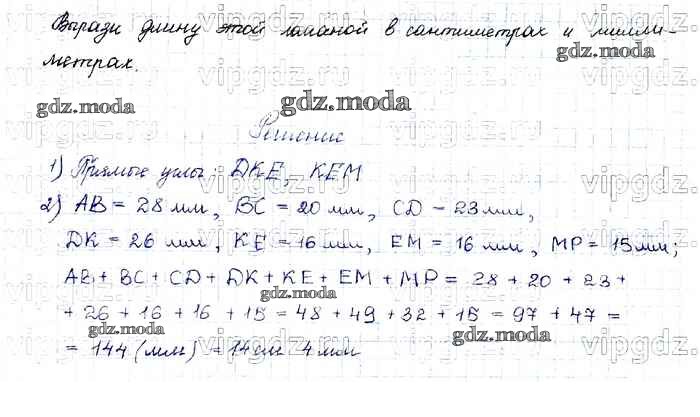 Вырази длину этой ломаной в сантиметрах и милли-
метрах.
Решение
1) Прямые углы: DKE, KEM
2) AB = 28 мм, BC = 20 мм, CD - 23 мм,
DK = 26 мм, KE = 16 мм, EM = 16 мм, MP = 15 мм;
AB + BC + CD + DK + KE + EM + MP = 28 + 20 + 23 +
+ 26 + 16 + 16 + 15 = 48 + 49 + 32 + 15 = 97 + 47 =
= 144 (мм) = 14 см 4 мм
gdz.moda
gdz.moda
gdz.moda
gdz.moda
gdz.moda
gdz.moda
gdz.moda
vipgdz.ru
vipgdz.ru
vipgdz.ru